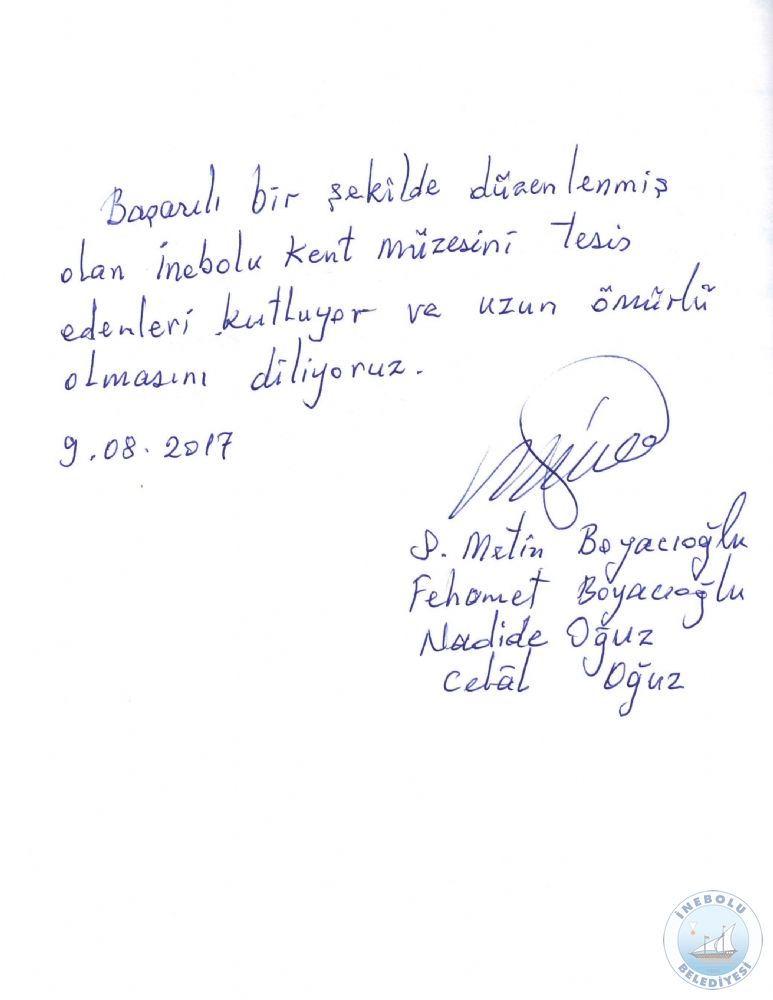 Başarılı bir şekilde düzenlenmiş
olan İnebolu Kent müzesini tesis
edenleri kutluyor ve uzun ömürlü
olmasını diliyoruz.
9.08.2017
S. Metin Boyacıoğlu
Fehamet Boyacıoğlu
Nadide Oğuz
Celâl Oğuz
İNEBOLU
BELEDİYESİ